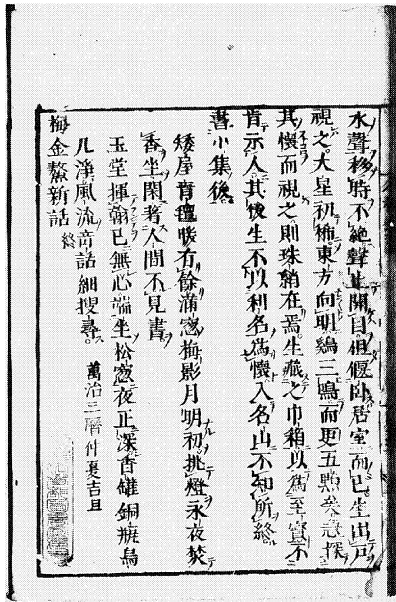 水聲移時不絶聲止開目但偃臥居室而已生出戶
視之大星初稀東方向明鷄三鳴而更五點矣急探
其懷而視之則珠綃在焉生藏之巾箱以爲至寶不
肯示人其後生不以利名爲懷入名山不知所終
書小集後
矮屋靑氊暖有餘滿窓梅影月明初挑燈永夜焚
香坐閑著人間不見書
玉堂揮翰已無心端坐松窓夜正深香罐銅甁烏
几淨風流奇話細搜尋
萬治三曆仲夏吉旦
梅金鰲新話 終